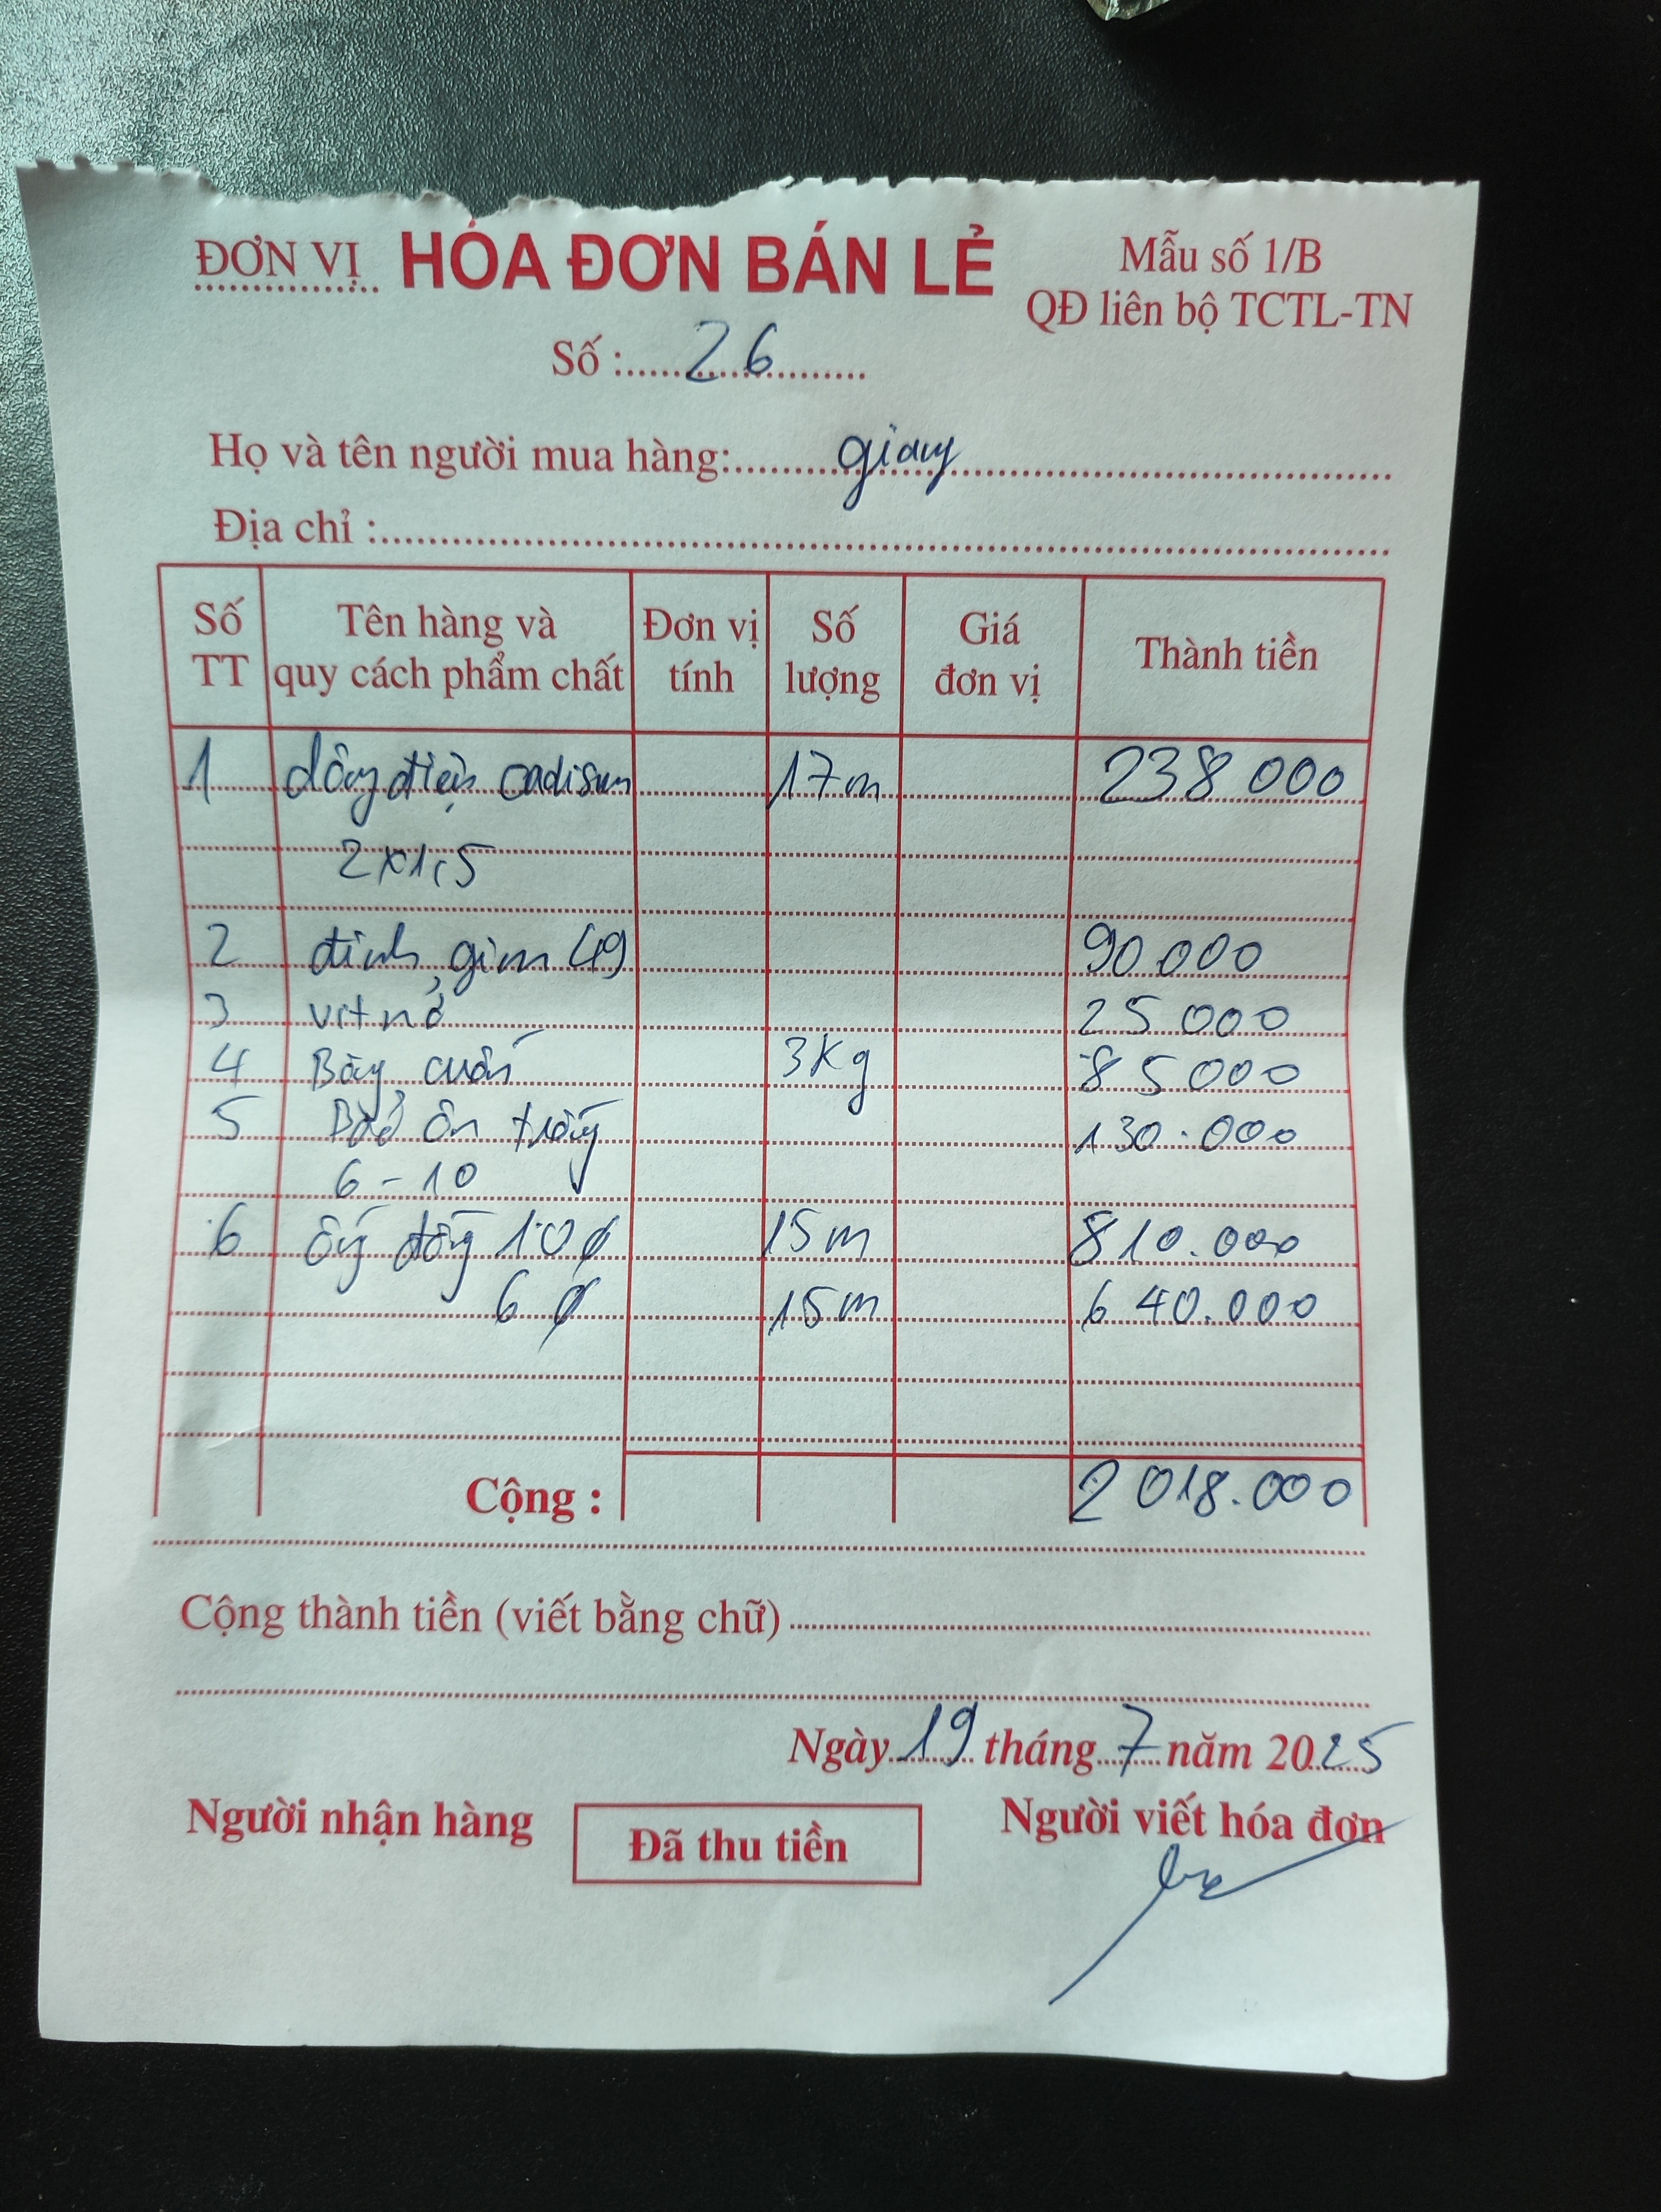 ĐƠN VỊ HÓA ĐƠN BÁN LẺ Mẫu số 1/B
QĐ liên bộ TCTL-TN
Số : 26
Họ và tên người mua hàng: giang
Địa chỉ :
Số TT Tên hàng và quy cách phẩm chất Đơn vị tính Số lượng Giá đơn vị Thành tiền
1 dây điện cadisun 17m 238 000
2x1,5
2 đinh, gim 90 000
3 vít nở 25 000
4 Băng cuốn 3kg 85 000
5 Bảo ôn trắng 130.000
6-10
6 ống đồng 10ø 15m 810.000
6ø 15m 640.000
Cộng : 2 018.000
Cộng thành tiền (viết bằng chữ)
Ngày 19 tháng 7 năm 2025
Người nhận hàng Đã thu tiền Người viết hóa đơn